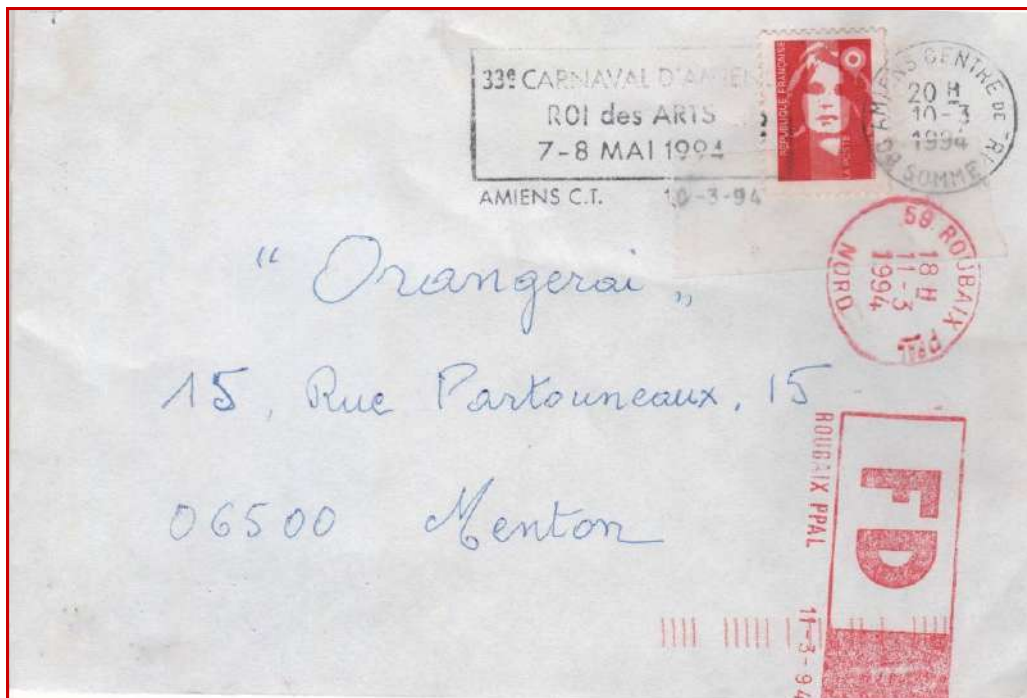 33e CARNAVAL D'AMIENS
ROI des ARTS
7-8 MAI 1994
AMIENS C.T. 10-3-94
RÉPUBLIQUE FRANÇAISE
LA POSTE
80 AMIENS CENTRE DE TRI
20 H
10-3
1994
SOMME
59 ROUBAIX PPAL
18 H
11-3
1994
NORD
" Orangerai "
15, Rue Partouneaux, 15
06500 Menton
ROUBAIX PPAL 11-3-94
FD